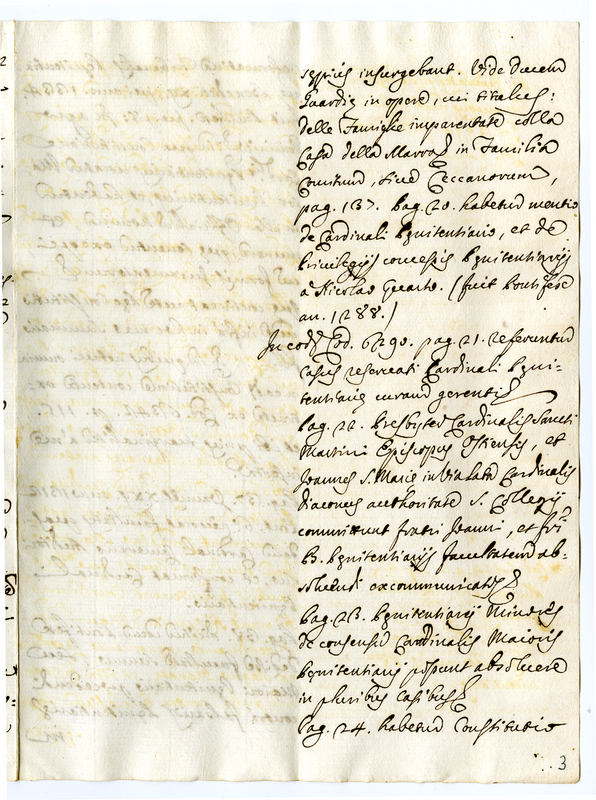 sepius insurgebant. Vide Ducem
Guardia in opere, cui titulus:
delle Famiglie imparentate colla
Casa della Marra in Familia
Comitum, sive Ceccanorum,
pag. 137. Pag. 20. habetur mentio
de Cardinali Penitentiario, et de
Privilegijs concessis Penitentiarijs
a Nicolao Quarto. (fuit Pontifex
an. 1288.)
In eod. Cod. 6290. pag. 21. referuntur
casus reservati Cardinali Peni-
tentiariæ curam gerentis
Pag. 22. Presbyter Cardinalis Sancti
Martini Episcopus Ostiensis, et
Joannes S. Mariæ in Via lata Cardinalis
Diaconus authoritate S. Collegij
committunt fratri Joanni, et fri
B. Penitentiarijs facultatem ab-
solvendi excommunicatos
Pag. 23. Penitentiarij Minores
de consensu Cardinalis Maioris
Penitentiarij possunt absolvere
in pluribus casibus
Pag. 24. habetur Constitutio
3